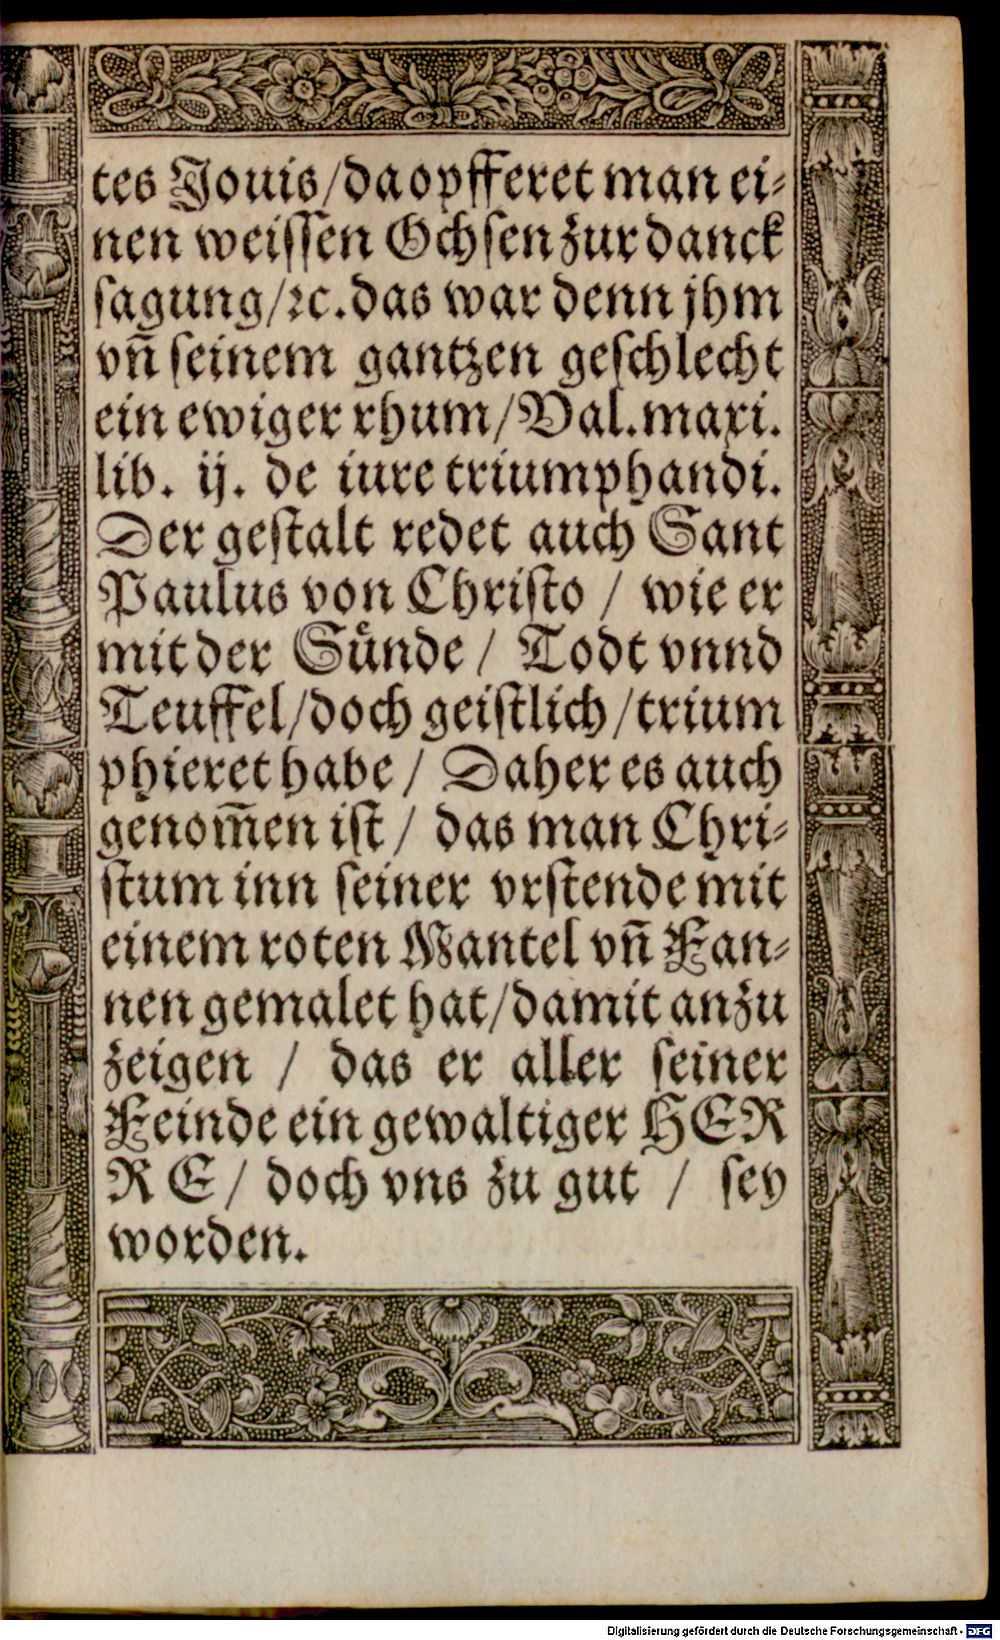 tes Jouis/da opfferet man ei⸗
nen weiſſen Ochſen zur danck
ſagung/ꝛc. das war denn jhm
vn̄ ſeinem gantzen geſchlecht
ein ewiger rhum/Val. maxi.
lib. ij. de iure triumphandi.
Der geſtalt redet auch Sant
Paulus von Chriſto / wie er
mit der Suͤnde / Todt vnnd
Teuffel/doch geiſtlich/trium
phieret habe / Daher es auch
genom̄en iſt / das man Chri⸗
ſtum inn ſeiner vrſtende mit
einem roten Mantel vn̄ Fan⸗
nen gemalet hat/damit anzu
zeigen / das er aller ſeiner
Feinde ein gewaltiger HER
RE/ doch vns zu gut / ſey
worden.
Digitalisierung gefördert durch die Deutsche Forschungsgemeinschaft - DFG